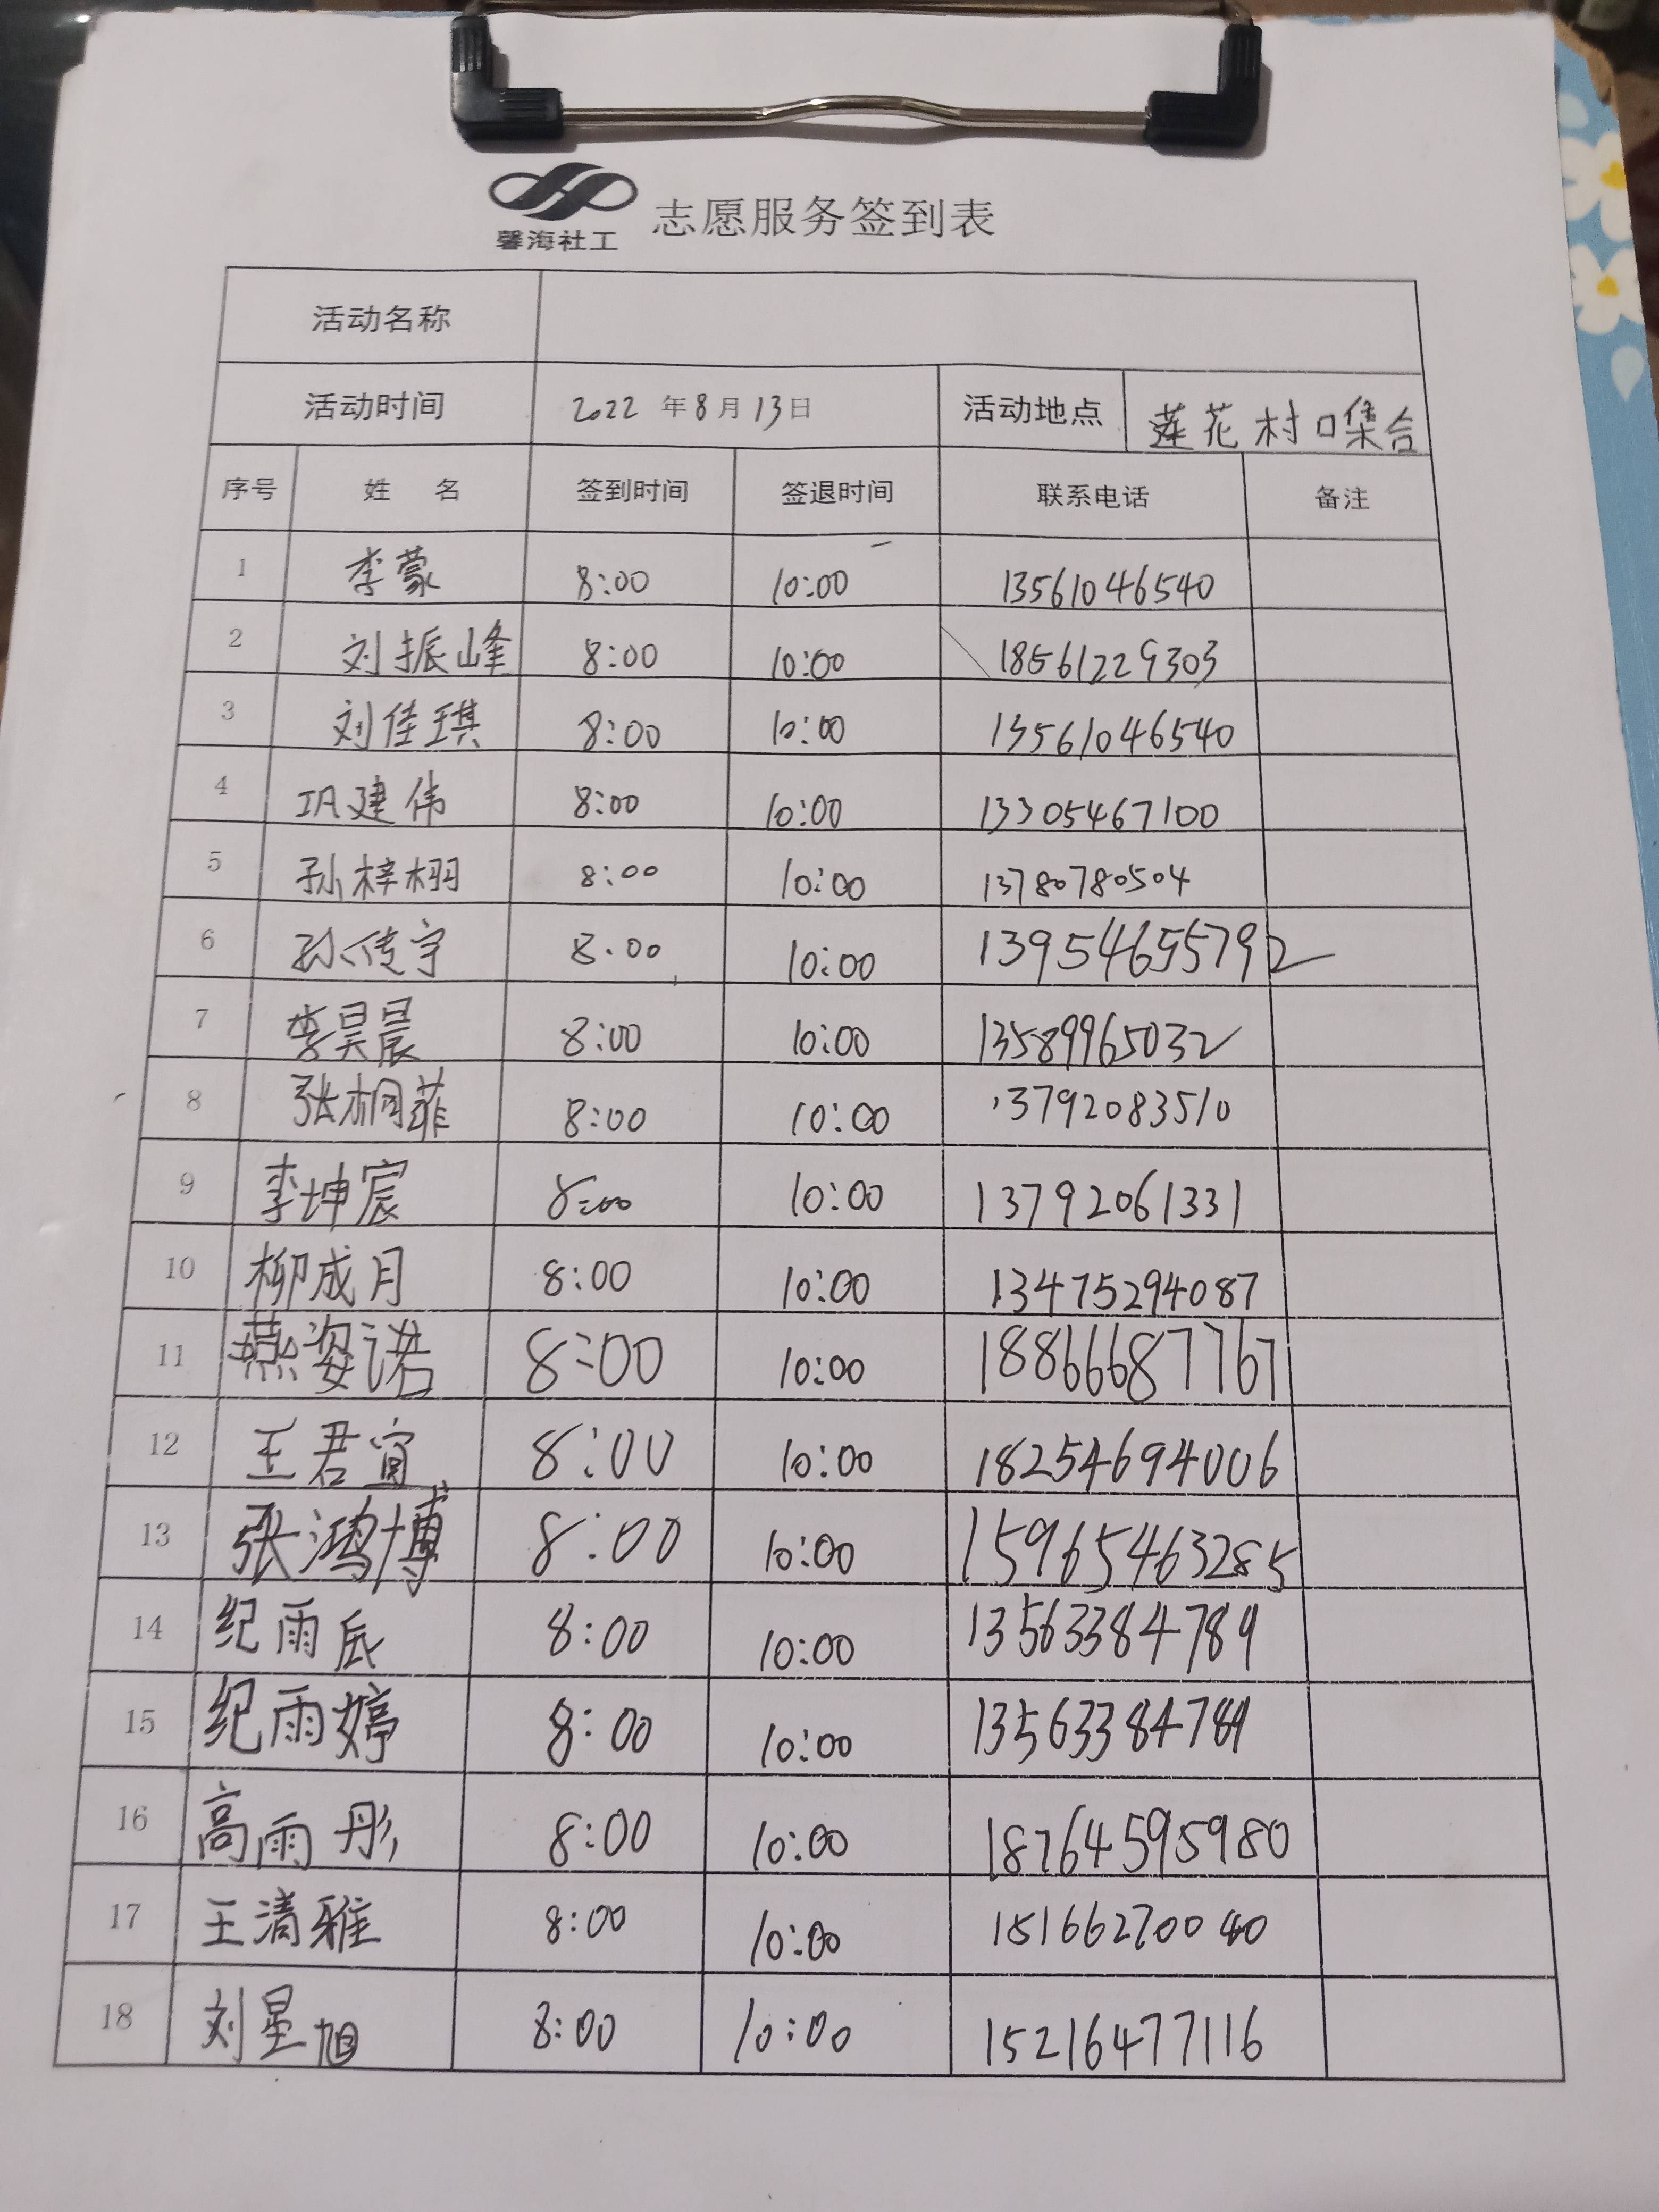 馨海社工
志愿服务签到表
活动名称
活动时间 2022年8月13日 活动地点 莲花村口集合
序号 姓 名 签到时间 签退时间 联系电话 备注
1 李蒙 8:00 10:00 13561046540
2 刘振峰 8:00 10:00 18561229303
3 刘佳琪 8:00 10:00 13561046540
4 巩建伟 8:00 10:00 13305467100
5 孙梓栩 8:00 10:00 13780780504
6 孙传宇 8:00 10:00 13954655792
7 李昊晨 8:00 10:00 13589965032
8 张桐菲 8:00 10:00 13792083510
9 李坤宸 8:00 10:00 13792061331
10 柳成月 8:00 10:00 13475294087
11 燕姿诺 8:00 10:00 18866687767
12 王君宜 8:00 10:00 18254694006
13 张鸿博 8:00 10:00 15965463285
14 纪雨辰 8:00 10:00 13563384789
15 纪雨婷 8:00 10:00 13563384789
16 高雨彤 8:00 10:00 18764595980
17 王清雅 8:00 10:00
18 刘星旭 8:00 10:00 15216477116